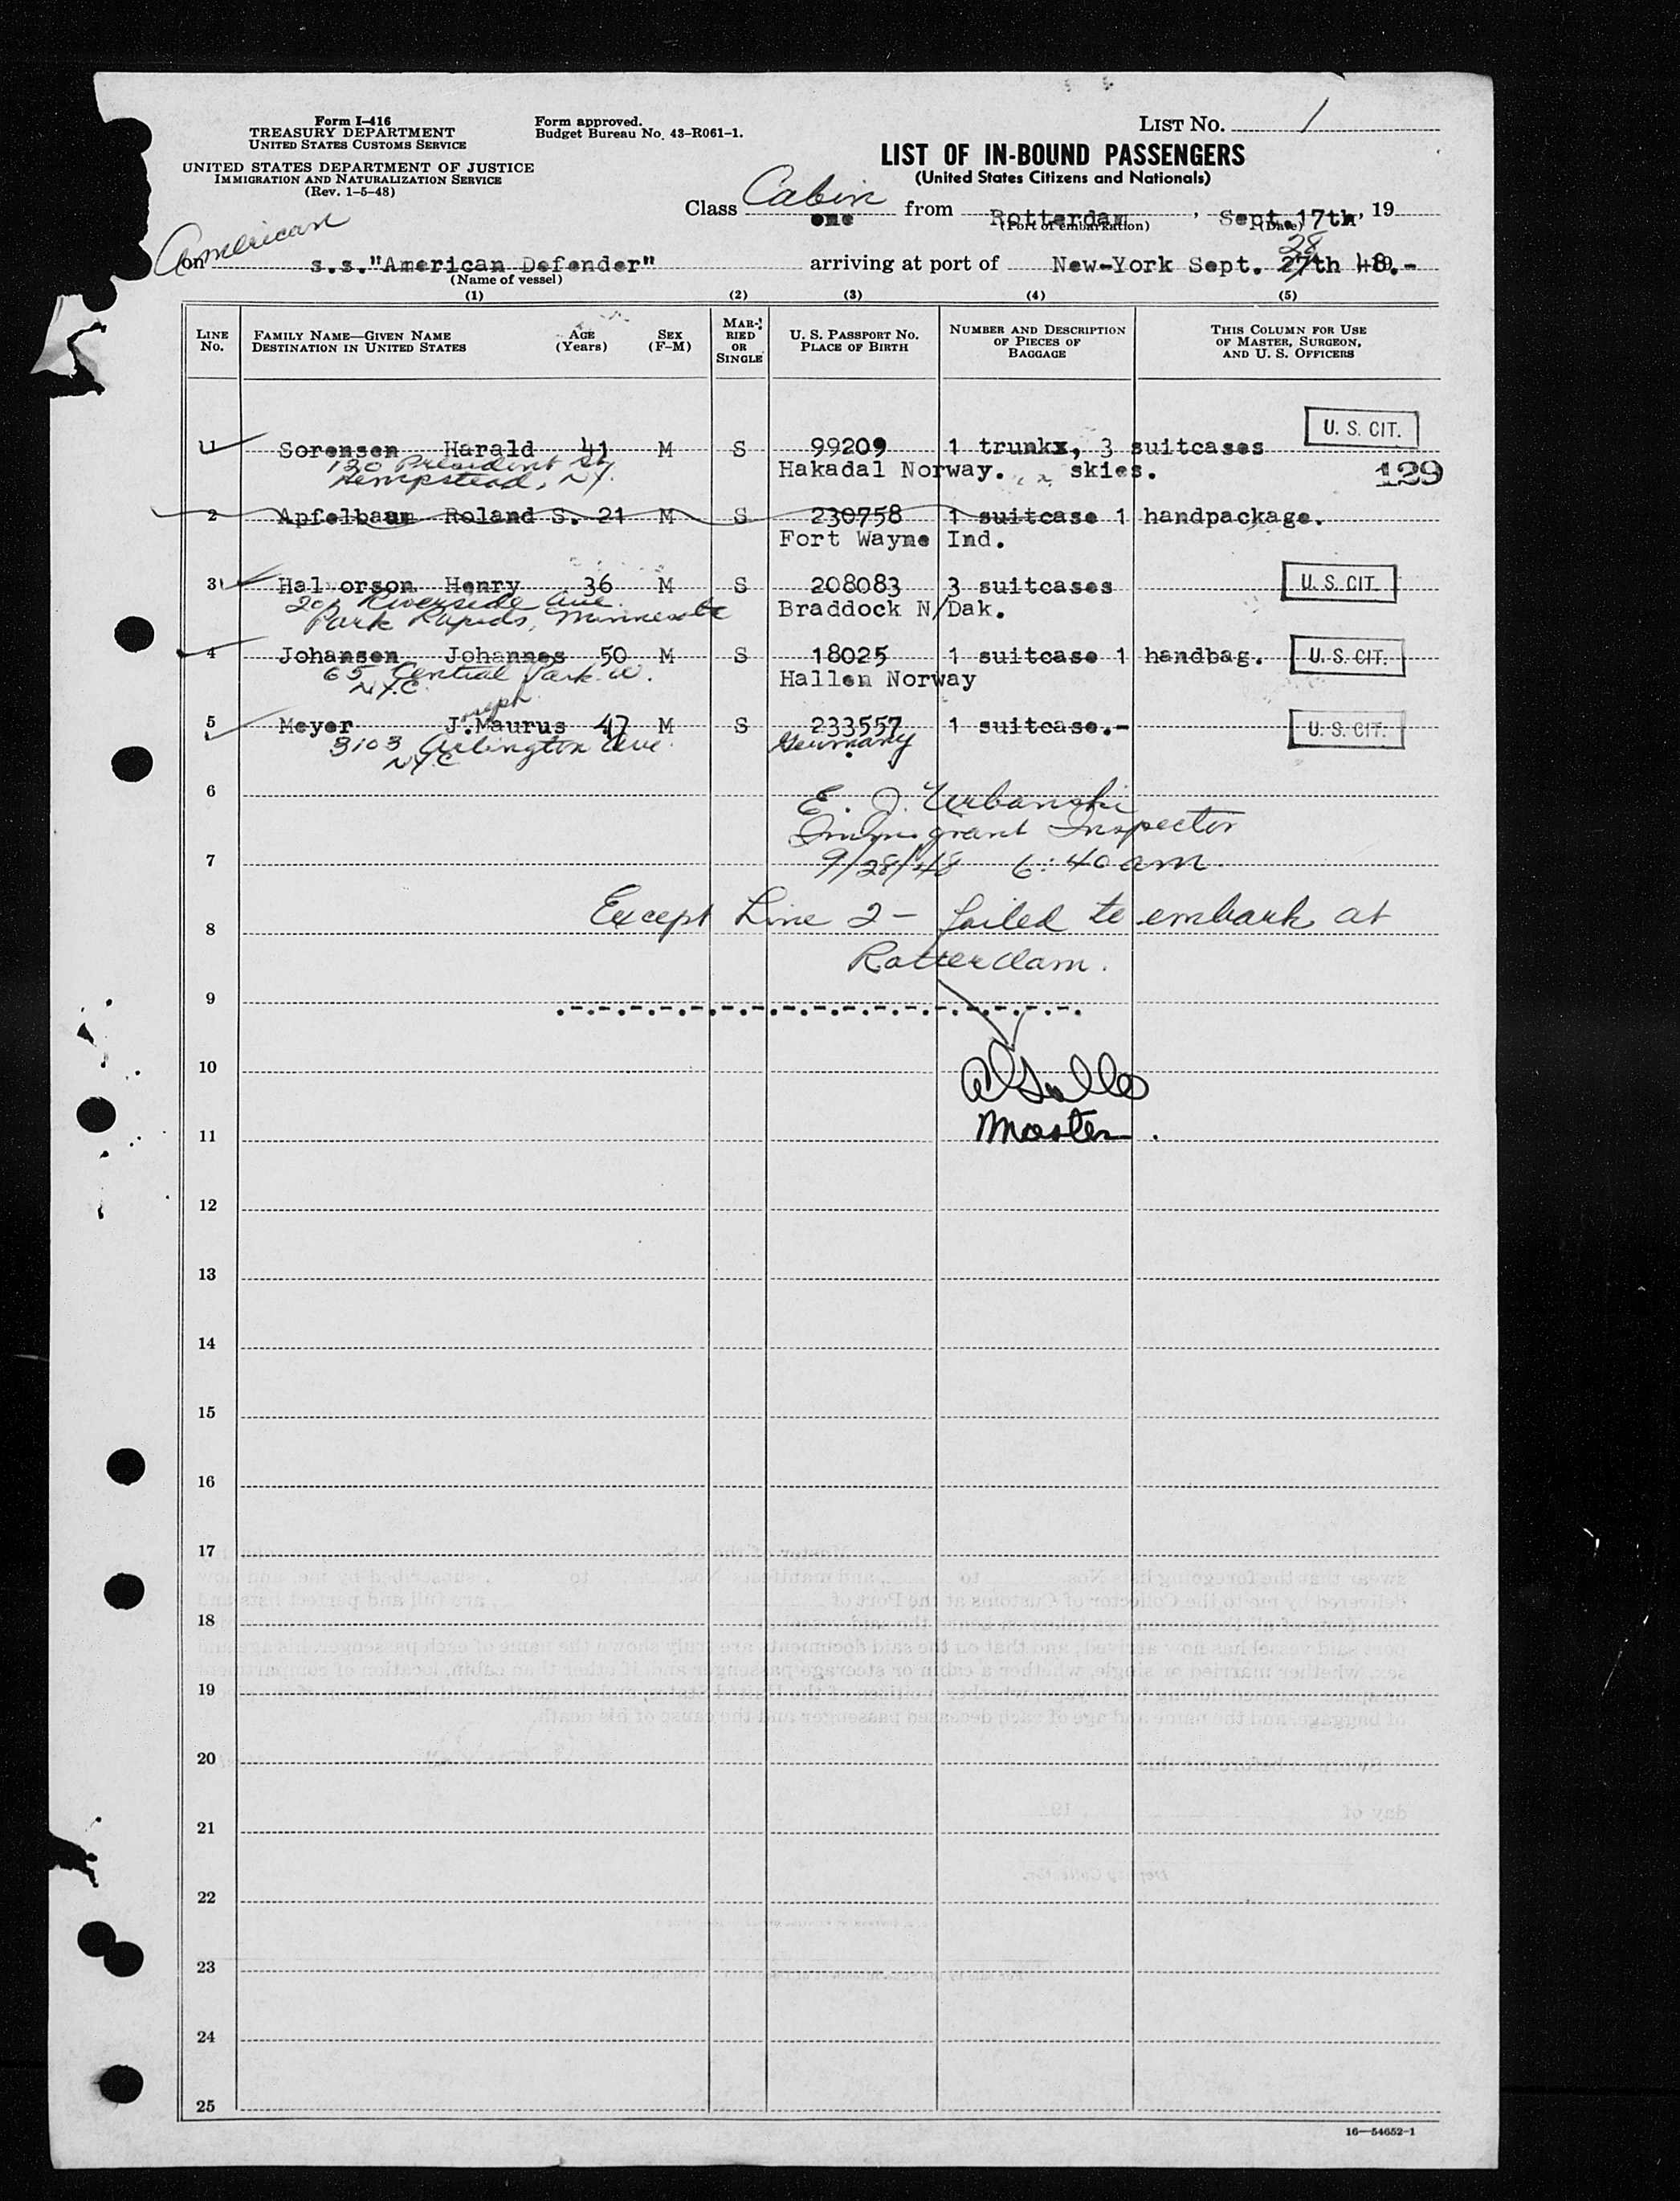 Form I-416
TREASURY DEPARTMENT
UNITED STATES CUSTOMS SERVICE
UNITED STATES DEPARTMENT OF JUSTICE
IMMIGRATION AND NATURALIZATION SERVICE
(Rev. 1-5-48)
Form approved.
Budget Bureau No. 43-R061-1.
LIST NO. 1
LIST OF IN-BOUND PASSENGERS
(United States Citizens and Nationals)
Class Cabin one from Rotterdam, Sept. 17th, 19
(Port of embarkation) (Date)
American
on s.s."American Defender" arriving at port of New-York Sept. 27th 28 19 48.-
(Name of vessel)
(1) (2) (3) (4) (5)
LINE NO. FAMILY NAME—GIVEN NAME DESTINATION IN UNITED STATES AGE (Years) SEX (F-M) MARRIED OR SINGLE U. S. PASSPORT NO. PLACE OF BIRTH NUMBER AND DESCRIPTION OF PIECES OF BAGGAGE THIS COLUMN FOR USE OF MASTER, SURGEON, AND U. S. OFFICERS
1 Sorensen Harald 41 M S 99209 1 trunkx, 3 suitcases U. S. CIT.
130 President St Hakadal Norway. skies. 129
Hempstead, N.Y.
2 Apfelbaum Roland S. 21 M S 230758 1 suitcase 1 handpackage.
Fort Wayne Ind.
3 Hal orson Henry 36 M S 208083 3 suitcases U. S. CIT.
Riverside Ave. Braddock N/Dak.
Park Rapids, Minnesota
4 Johansen Johannes 50 M S 18025 1 suitcase 1 handbag. U. S. CIT.
65 Central Park W. Hallen Norway
N.Y.C.
5 Meyer J.oseph Maurus 47 M S 233557 1 suitcase.- U. S. CIT.
3103 Arlington Ave. Germany
N.Y.C.
6 E. J. Urbanski
Immigrant Inspector
7 9/28/48 6:40 am.
8 Except Line 2 - failed to embark at
Rotterdam.
9
10
11 Master.
12
13
14
15
16
17
18
19
20
21
22
23
24
25
16—54652-1